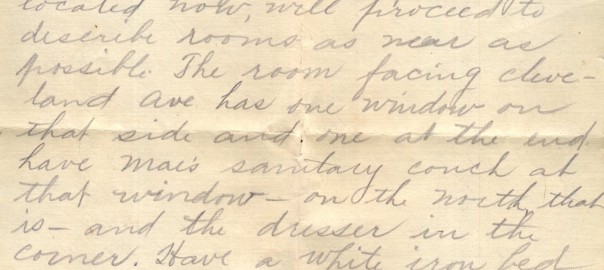 located now, will proceed to
describe rooms as near as
possible. The room facing Cleve-
land Ave has one window on
that side and one at the end.
have Mae's sanitary couch at
that window - on the north, that
is - and the dresser in the
corner. Have a white iron bed